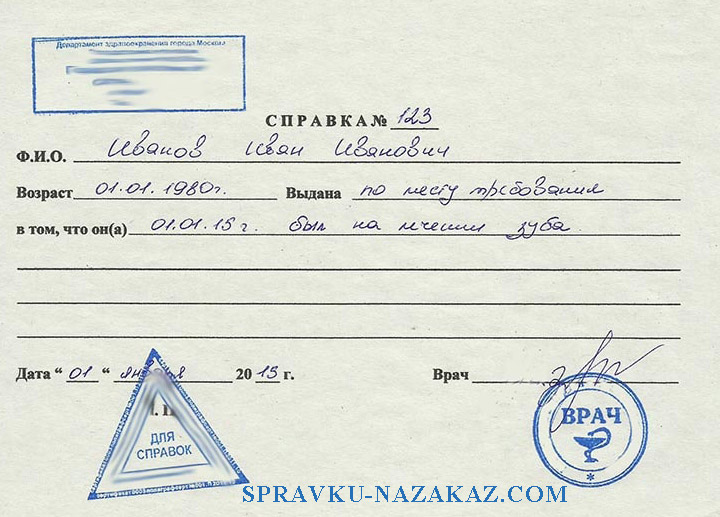 Департамент здравоохранения города Москвы
СПРАВКА № 123
Ф.И.О. Иванов Иван Иванович
Возраст 01.01.1980г. Выдана по месту требования
в том, что он(а) 01.01.15 г. был на лечении зуба
Дата “ 01 “ января 20 15 г. Врач
М. П.
ДЛЯ
СПРАВОК
ВРАЧ
SPRAVKU-NAZAKAZ.COM